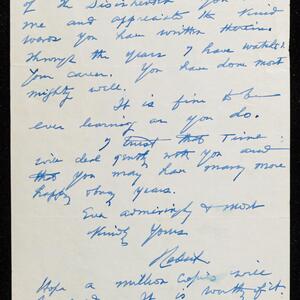 of the Disinherited you
me and appreciate the kind
words you have written therein.
Through the years I have watched
your career. You have done most
mighty well.
It is fine to be
ever learning as you do.
I trust that Time
will deal gently with you and
that you may have many more
happy busy years.
Ever admiringly & most
Kindly Yours
Hope a million copies will
It is worthy of it.